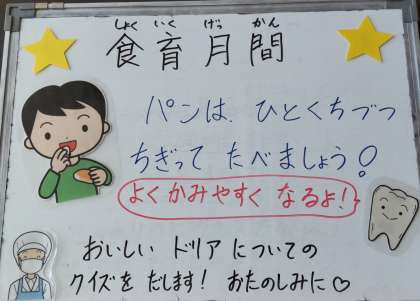 しょく いく げっ かん
食育月間
パンは、ひとくちづつ
ちぎって たべましょう!
よくかみやすく なるよ!
おいしい ドリア についての
クイズを だします! おたのしみに♡